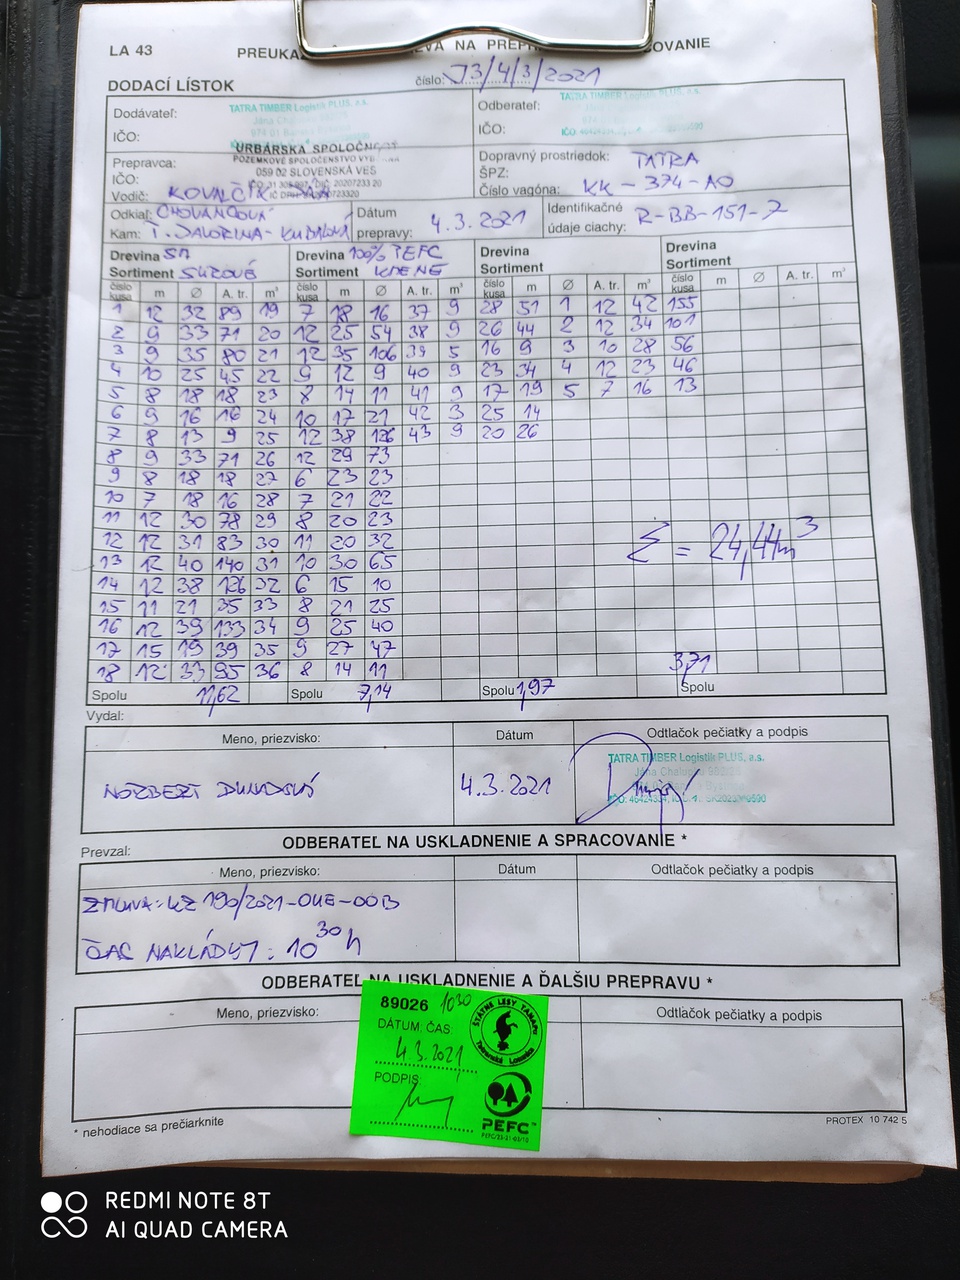 LA 43
DODACÍ LÍSTOK
číslo: J3/4/3/2021
Dodávateľ:
TATRA TIMBER Logistik PLUS, a.s.
IČO:
Odberateľ:
TATRA TIMBER Logistik PLUS, a.s.
IČO:
Prepravca:
URBÁRSKA SPOLOČNOSŤ
POZEMKOVÉ SPOLOČENSTVO
059 02 SLOVENSKÁ VES
IČO:
Vodič: KOVALČÍK
Dopravný prostriedok: TATRA
ŠPZ:
Číslo vagóna: KK - 374 - AO
Odkiaľ: CHOVANCOVÁ
Kam: T. JAVORINA-
Dátum
prepravy: 4.3.2021
Identifikačné
údaje ciachy: R-BB-151-7
Drevina SM
Sortiment SUROVÉ
Drevina 100% PEFC
Sortiment KMENE
Drevina
Sortiment
Drevina
Sortiment
číslo kusa m Ø A. tr. m³ číslo kusa m Ø A. tr. m³ číslo kusa m Ø A. tr. m³ číslo kusa m Ø A. tr. m³
1 12 32 89 19 7 18 16 37 9 28 51 1 12 42 155
2 9 33 71 20 12 25 54 38 9 26 44 2 12 34 101
3 9 35 80 21 12 35 106 39 5 16 9 3 10 28 56
4 10 25 45 22 9 12 9 40 9 23 34 4 12 23 46
5 8 18 18 23 8 14 11 41 9 17 19 5 7 16 13
6 9 16 16 24 10 17 21 42 3 25 14
7 8 13 9 25 12 38 126 43 9 20 26
8 9 33 71 26 12 29 73
9 8 18 18 27 6 23 23
10 7 18 16 28 7 21 22
11 12 30 78 29 8 20 23
12 12 31 83 30 11 20 32
13 12 40 140 31 10 30 65
14 12 38 126 32 6 15 10
15 11 21 35 33 8 21 25
16 12 39 133 34 9 25 40
17 15 19 39 35 9 27 47
18 12 33 95 36 8 14 11
Σ = 24,44m³
Spolu 11,62
Spolu 7,14
Spolu 1,97
3,71
Spolu
Vydal:
Meno, priezvisko:
Dátum
Odtlačok pečiatky a podpis
NORBERT
4.3.2021
TATRA TIMBER Logistik PLUS, a.s.
ODBERATEĽ NA USKLADNENIE A SPRACOVANIE *
Prevzal:
Meno, priezvisko:
Dátum
Odtlačok pečiatky a podpis
ZMLUVA: KZ 190/2021-OHE-OOB
ČAS NAKLÁDKY: 10³⁰ h
ODBERATEĽ NA USKLADNENIE A ĎALŠIU PREPRAVU *
Meno, priezvisko:
Odtlačok pečiatky a podpis
89026 1030
DÁTUM, ČAS:
4.3.2021
PODPIS:
ŠTÁTNE LESY TANAPu
Tatranská Lomnica
PEFC
* nehodiace sa prečiarknite
PROTEX 10 742 5
REDMI NOTE 8T
AI QUAD CAMERA